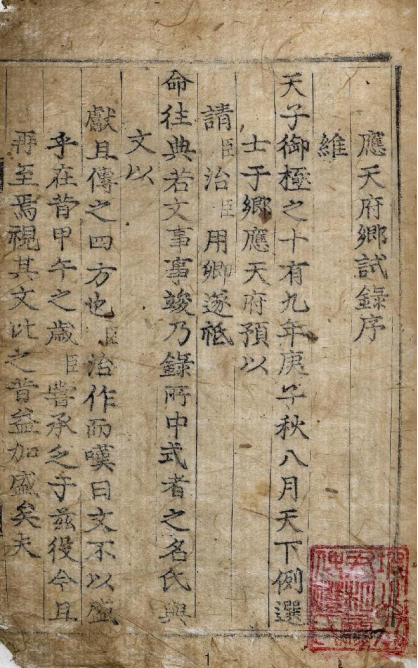 應天府鄉試錄序
維
天子御極之十有九年庚子秋八月天下例選
士于鄉應天府預以
請臣治臣用卿遂祗
命往典若文事事竣乃錄所中式者之名氏與
文以
獻且傳之四方也臣治作而嘆曰文不以盛
乎在昔甲午之歲臣嘗承乏于茲役今且
再至焉視其文比之昔益加盛矣夫
1